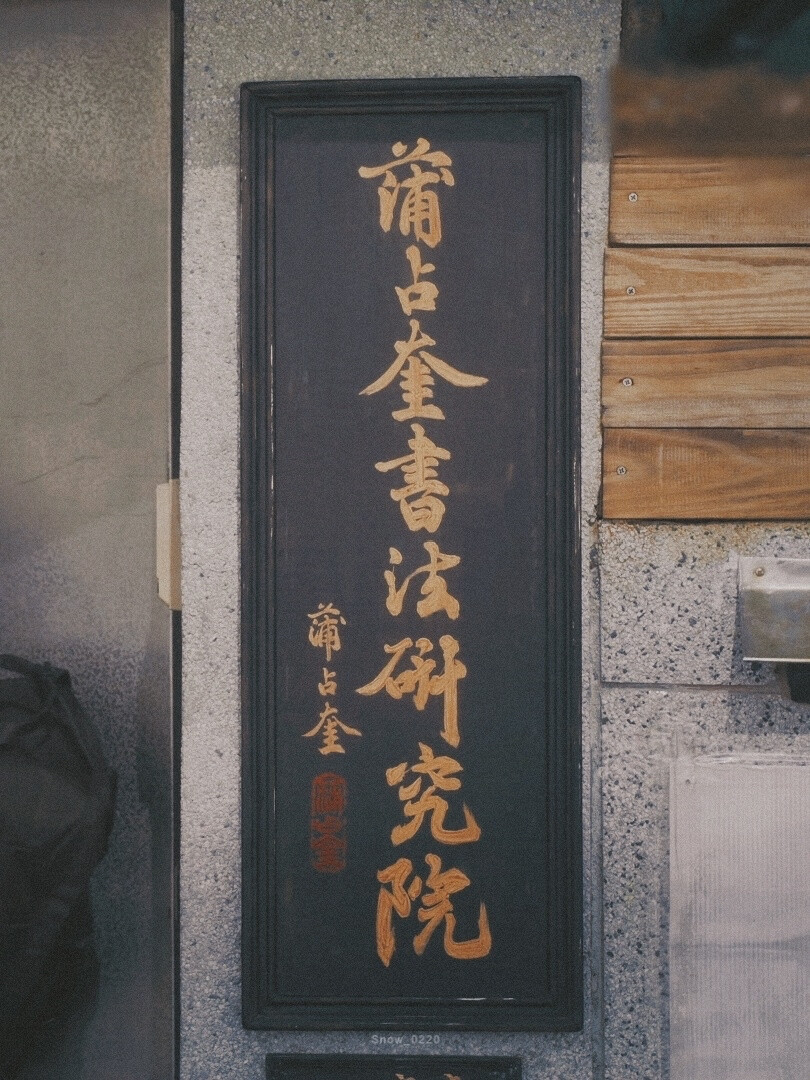 蒲占奎書法研究院
蒲占奎
Snow_0220